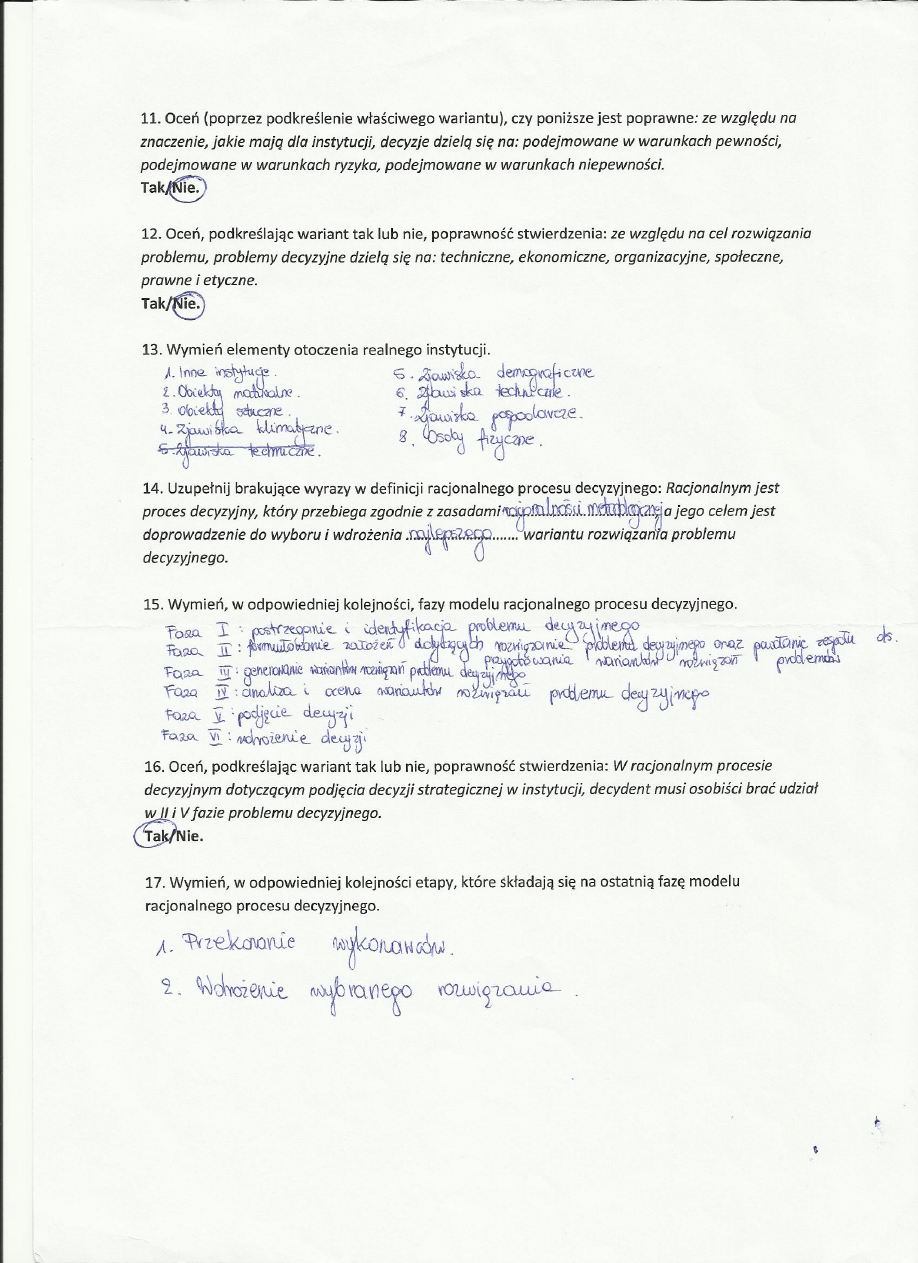 11. Oceń (poprzez podkreślenie właściwego wariantu), czy poniższe jest poprawne: ze względu na
znaczenie, jakie mają dla instytucji, decyzje dzielą się na: podejmowane w warunkach pewności,
podejmowane w warunkach ryzyka, podejmowane w warunkach niepewności.
Tak/Nie.
12. Oceń, podkreślając wariant tak lub nie, poprawność stwierdzenia: ze względu na cel rozwiązania
problemu, problemy decyzyjne dzielą się na: techniczne, ekonomiczne, organizacyjne, społeczne,
prawne i etyczne.
Tak/Nie.
13. Wymień elementy otoczenia realnego instytucji.
1. Inne instytucje.
2. Obiekty naturalne.
3. Obiekty sztuczne.
4. Zjawiska klimatyczne.
5. Zjawiska techniczne.
5. Zjawiska demograficzne
6. Zjawiska techniczne.
7. Zjawiska gospodarcze.
8. Osoby fizyczne.
14. Uzupełnij brakujące wyrazy w definicji racjonalnego procesu decyzyjnego: Racjonalnym jest
proces decyzyjny, który przebiega zgodnie z zasadami racjonalności metodologicznej a jego celem jest
doprowadzenie do wyboru i wdrożenia .najlepszego....... wariantu rozwiązania problemu
decyzyjnego.
15. Wymień, w odpowiedniej kolejności, fazy modelu racjonalnego procesu decyzyjnego.
Faza I : postrzeganie i identyfikacja problemu decyzyjnego
Faza II : formułowanie założeń dotyczących rozwiązania problemu decyzyjnego oraz powołanie zespołu ds.
przygotowania wariantów rozwiązań problemów
Faza III : generowanie wariantów rozwiązań problemu decyzyjnego
Faza IV : analiza i ocena wariantów rozwiązań problemu decyzyjnego
Faza V : podjęcie decyzji
Faza VI : wdrożenie decyzji
16. Oceń, podkreślając wariant tak lub nie, poprawność stwierdzenia: W racjonalnym procesie
decyzyjnym dotyczącym podjęcia decyzji strategicznej w instytucji, decydent musi osobiści brać udział
w II i V fazie problemu decyzyjnego.
Tak/Nie.
17. Wymień, w odpowiedniej kolejności etapy, które składają się na ostatnią fazę modelu
racjonalnego procesu decyzyjnego.
1. Przekonanie wykonawców.
2. Wdrożenie wybranego rozwiązania.